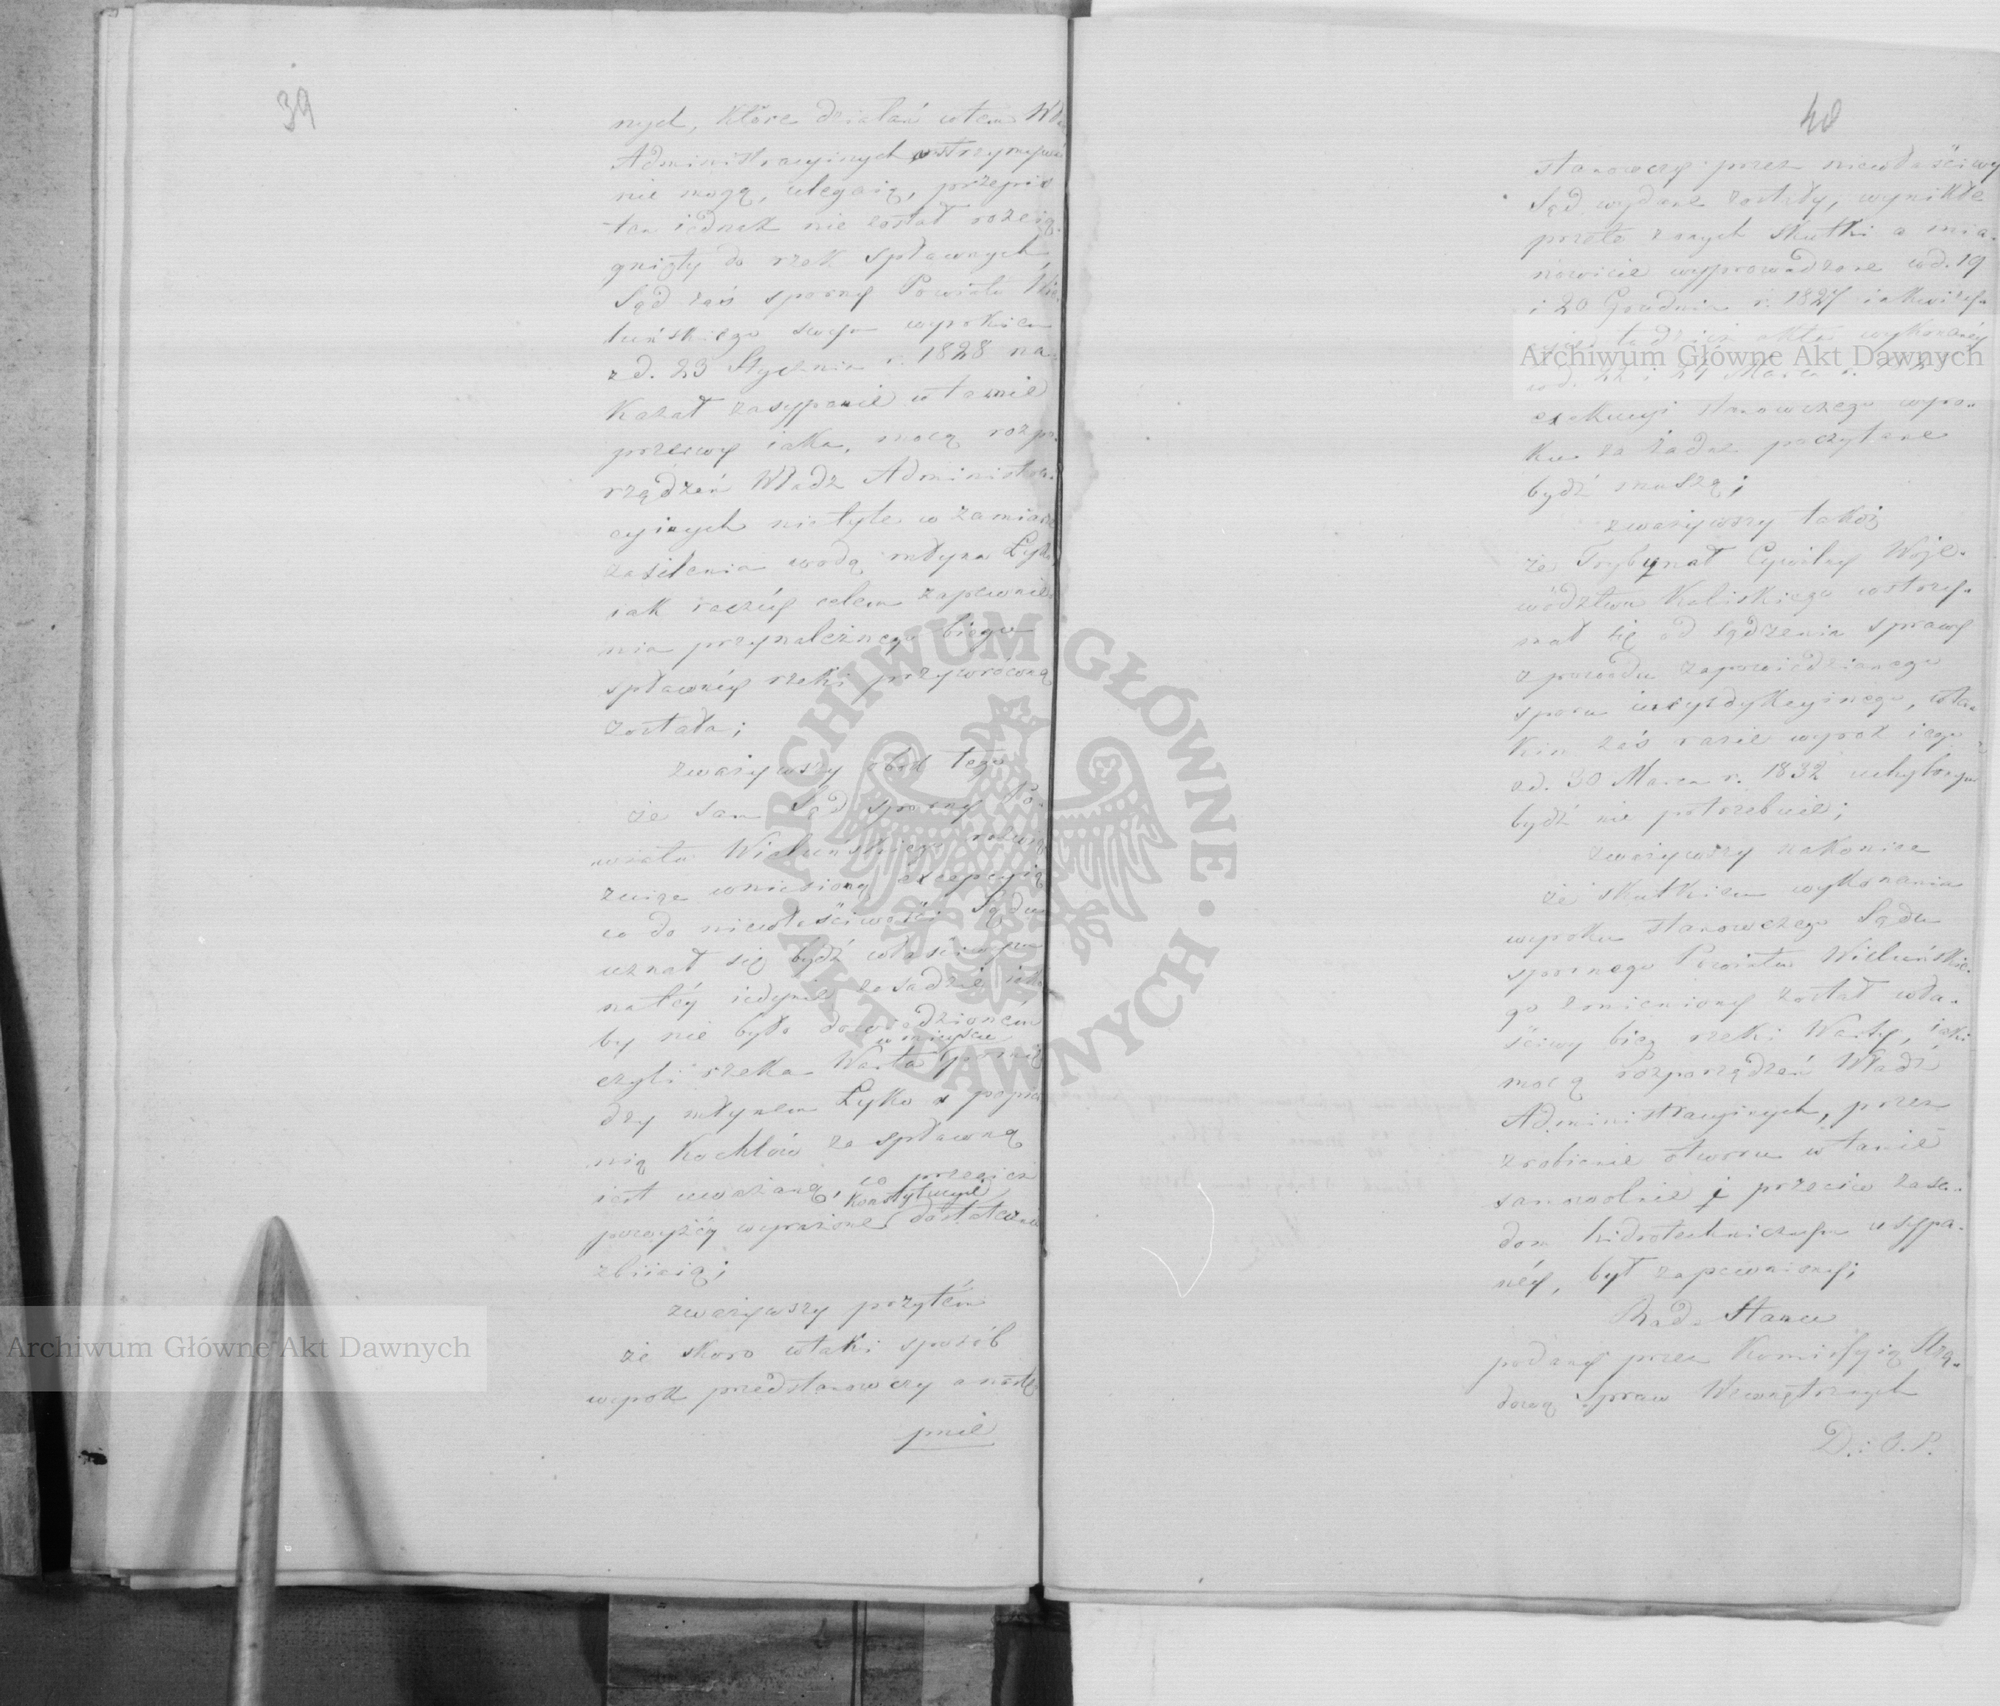 39
nych, które działań w tem Wła
Administracyinych wstrzymywać
nie mogą, ulegaią, przepis
ten iednak nie został rozcią-
gnięty do rzek spławnych,
Sąd zaś sporny Powiatu Wie-
luńskiego swym wyrokiem
z d. 23 Stycznia r. 1828 na-
kazał zasypanie w tamie
przerwy iaka, mocą rozpo-
rządzeń Władz Administra-
cyinych nietyle w zamiarze
zasilenia wodą młyna Łyko,
iak raczéy celem zapewnie-
nia przynależnego biegu
spławnéy rzeki przywróconą
została;
zważywszy obok tego
że sam Sąd sporny Po-
wiatu Wieluńskiego rozwią
zuiąc wniesioną excepcyią
co do niewłaściwości Sądu
uznał się bydź właściwym
na téy iedynie zasadzie iako
by nie było dowiedzionem
w mieyscu
czyli rzeka Warta pomię
dzy młynem Łyko a papier
nią Kochlów za spławną
iest uważaną, co przecież
Konstytucyie
powyżéy wyrażone dostatecznie
zbiiaią;
zważywszy przytém
że skoro w taki sposób
wyrok przedstanowczy a nastę
pnie
40
stanowczy przez niewłaściwy
Sąd wydane zostały, wynikłe
przeto z onych skutki a mia-
nowicie wyprowadzone w d. 19
i 20 Grudnia r. 1827
wykonanéy
w d. 22 i 24 Marca r.
exekucyi stanowczego wyro-
ku za żadne poczytane
bydź muszą;
zważywszy takoż
że Trybunał Cywilny Woje-
wództwa Kaliskiego wstrzy-
mał się od sądzenia sprawy
z powodu zapowiedzianego
sporu iurysdykcyinego, w ta-
kim zaś razie wyrok iego
z d. 30 Marca r. 1832 uchylonym
bydź nie potrzebuie;
zważywszy nakoniec
że skutkiem wykonania
wyroku stanowczego Sądu
spornego Powiatu Wieluńskie-
go zmieniony został wła-
ściwy bieg rzeki Warty, iaki
mocą rozporządzeń Władz
Administracyinych, przez
zrobienie otworu w tamie
samowolnie i przeciw zasa-
dom hidrotechnicznym usypa-
néy, był zapewniony;
Rada Stanu
podany przez Kommissyią Rzą-
dową Spraw Wewnętrznych
D. i O. P.
Archiwum Główne Akt Dawnych
Archiwum Główne Akt Dawnych
ARCHIWUM GŁÓWNE · AKT DAWNYCH ·